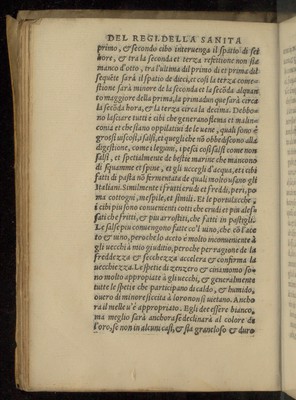 DEL REGI. DELLA SANITA
primo, & secondo cibo interuenga il spatio di sei
hore, & tra la seconda et terza refettione non sia
manco d'otto, tra l'ultima dil primo di et prima dil
sequẽte sarà il spatio de dieci, et cosi la terza come-
stione sarà minore de la seconda et la secõda alquan
to maggiore della prima, la prima dun que sarà circa
la secõda hora, & la terza circa la decima. Debbo-
no lasciare tutti e cibi che generano flema et malin-
conia et che stano oppilatiui de le uene, quali sono è
grossi uiscosi, salsi, et quegli che nõ obbediscono alla
digestione, come i legumi, i pesci cosi salsi come non
salsi, et spetialmente de bestie marine che mancono
di squamme et spine, et gli uccegli d'acqua, et i cibi
fatti di pasta nõ fermentate de quali molto usano gli
Italani. Similmente i frutti crudi et freddi, peri, po
ma cottogni, mespile, et simili. Et le portulacche
i cibi piu sono conuenienti cotti che crudi et piu ales-
sati che fritti, & piu arrostiti, che fatti in pastegli.
Le salse piu conuengono fatte cõ'l uino, che cõ l'ace
to & uuno, peroche lo aceto è molto inconueniente à
gli uecchi à mio giuditio, peroche per ragione de la
freddezza & secchezza accelera & confirma la
uecchiezza. Le spetie di zenzero & cinamomo so-
no molto appropiate à gli uecchi, & generalmente
tutte le spetie che participano di caldo, & humido,
ouero di minore siccità à loro non si uietano. Ancho
ra il melle u'è appropriato. Egli dee essere bianco,
ma meglio sarà anchora se declinarà al colore de
l'oro, se non in alcuni casi, & sia graneloso & duro